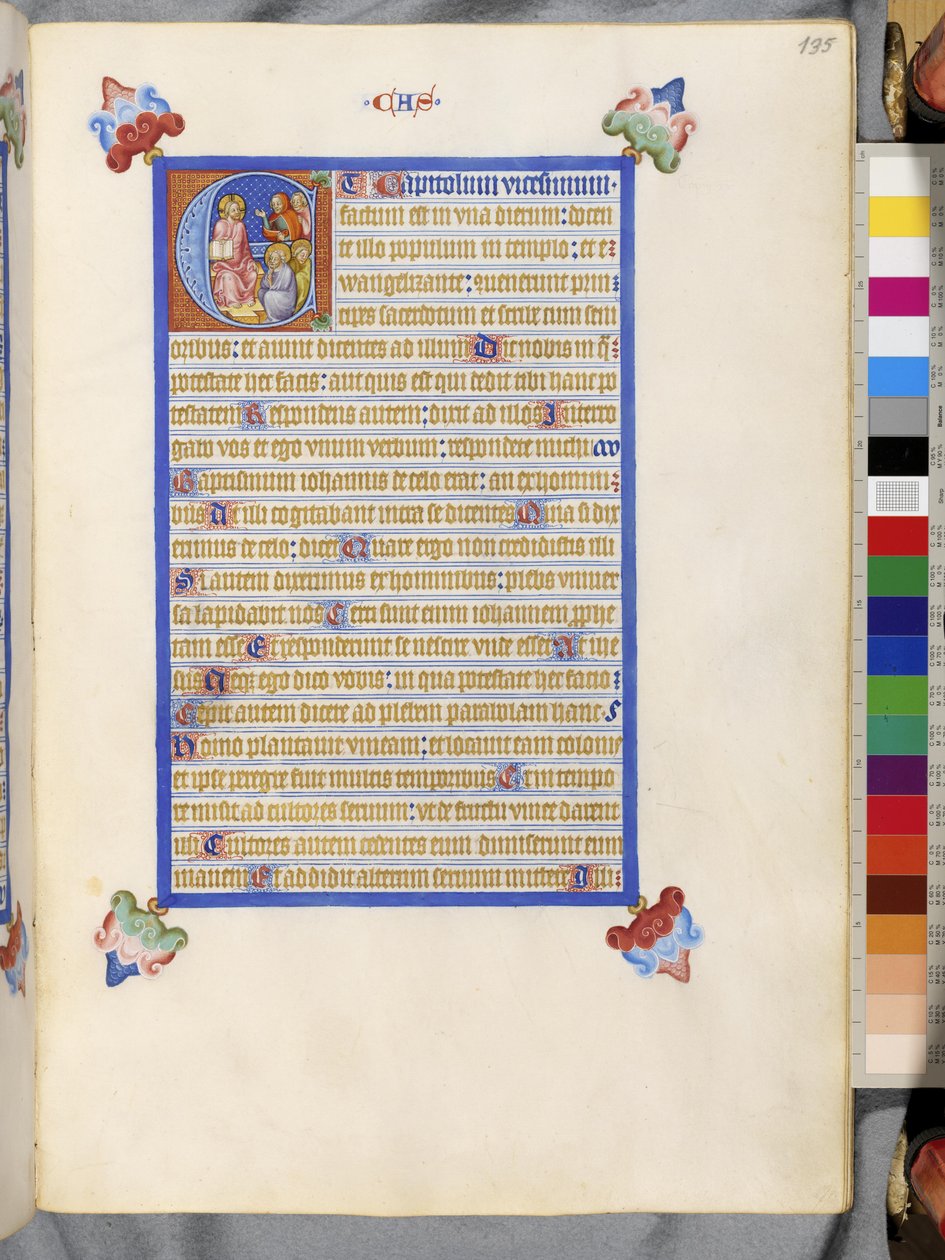 135
CAS
T Capitolum vicesimum.
factum est in vna dierum: docen
te illo populum in templo: et e
wangelizante: quenerunt prin
cipes sacerdotum et scribe cum seni
oribus: et aiunt dicentes ad illum Dic nobis in q̄
potestate hec facis: aut quis est qui dedit tibi hanc po
testatem Respondens autem: dixit ad illos Interro
gabo vos et ego vnum verbum: respondete michi
Baptismum iohannis de celo erat: an ex homini
bus At illi cogitabant intra se dicentes Quia si dix
erimus de celo: dicet Quare ergo non credidistis illi
Si autem dixerimus ex hominibus: plebs vniuer
sa lapidabit nos Certi sunt enim iohannem pphe
tam esse Et responderunt se nescire vnde esset Ait ihe
sus Neqz ego dico vobis: in qua potestate hec facio
Cepit autem dicere ad plebem parabolam hanc.
Homo plantauit vineam: et locauit eam colonis
et ipse peregre fuit multis temporibus Et in tempo
re misit ad cultores seruum: vt de fructu vinee darent
illi Cultores autem cedentes eum dimiserunt eum
inanem Et addidit alterum seruum mittere Illi